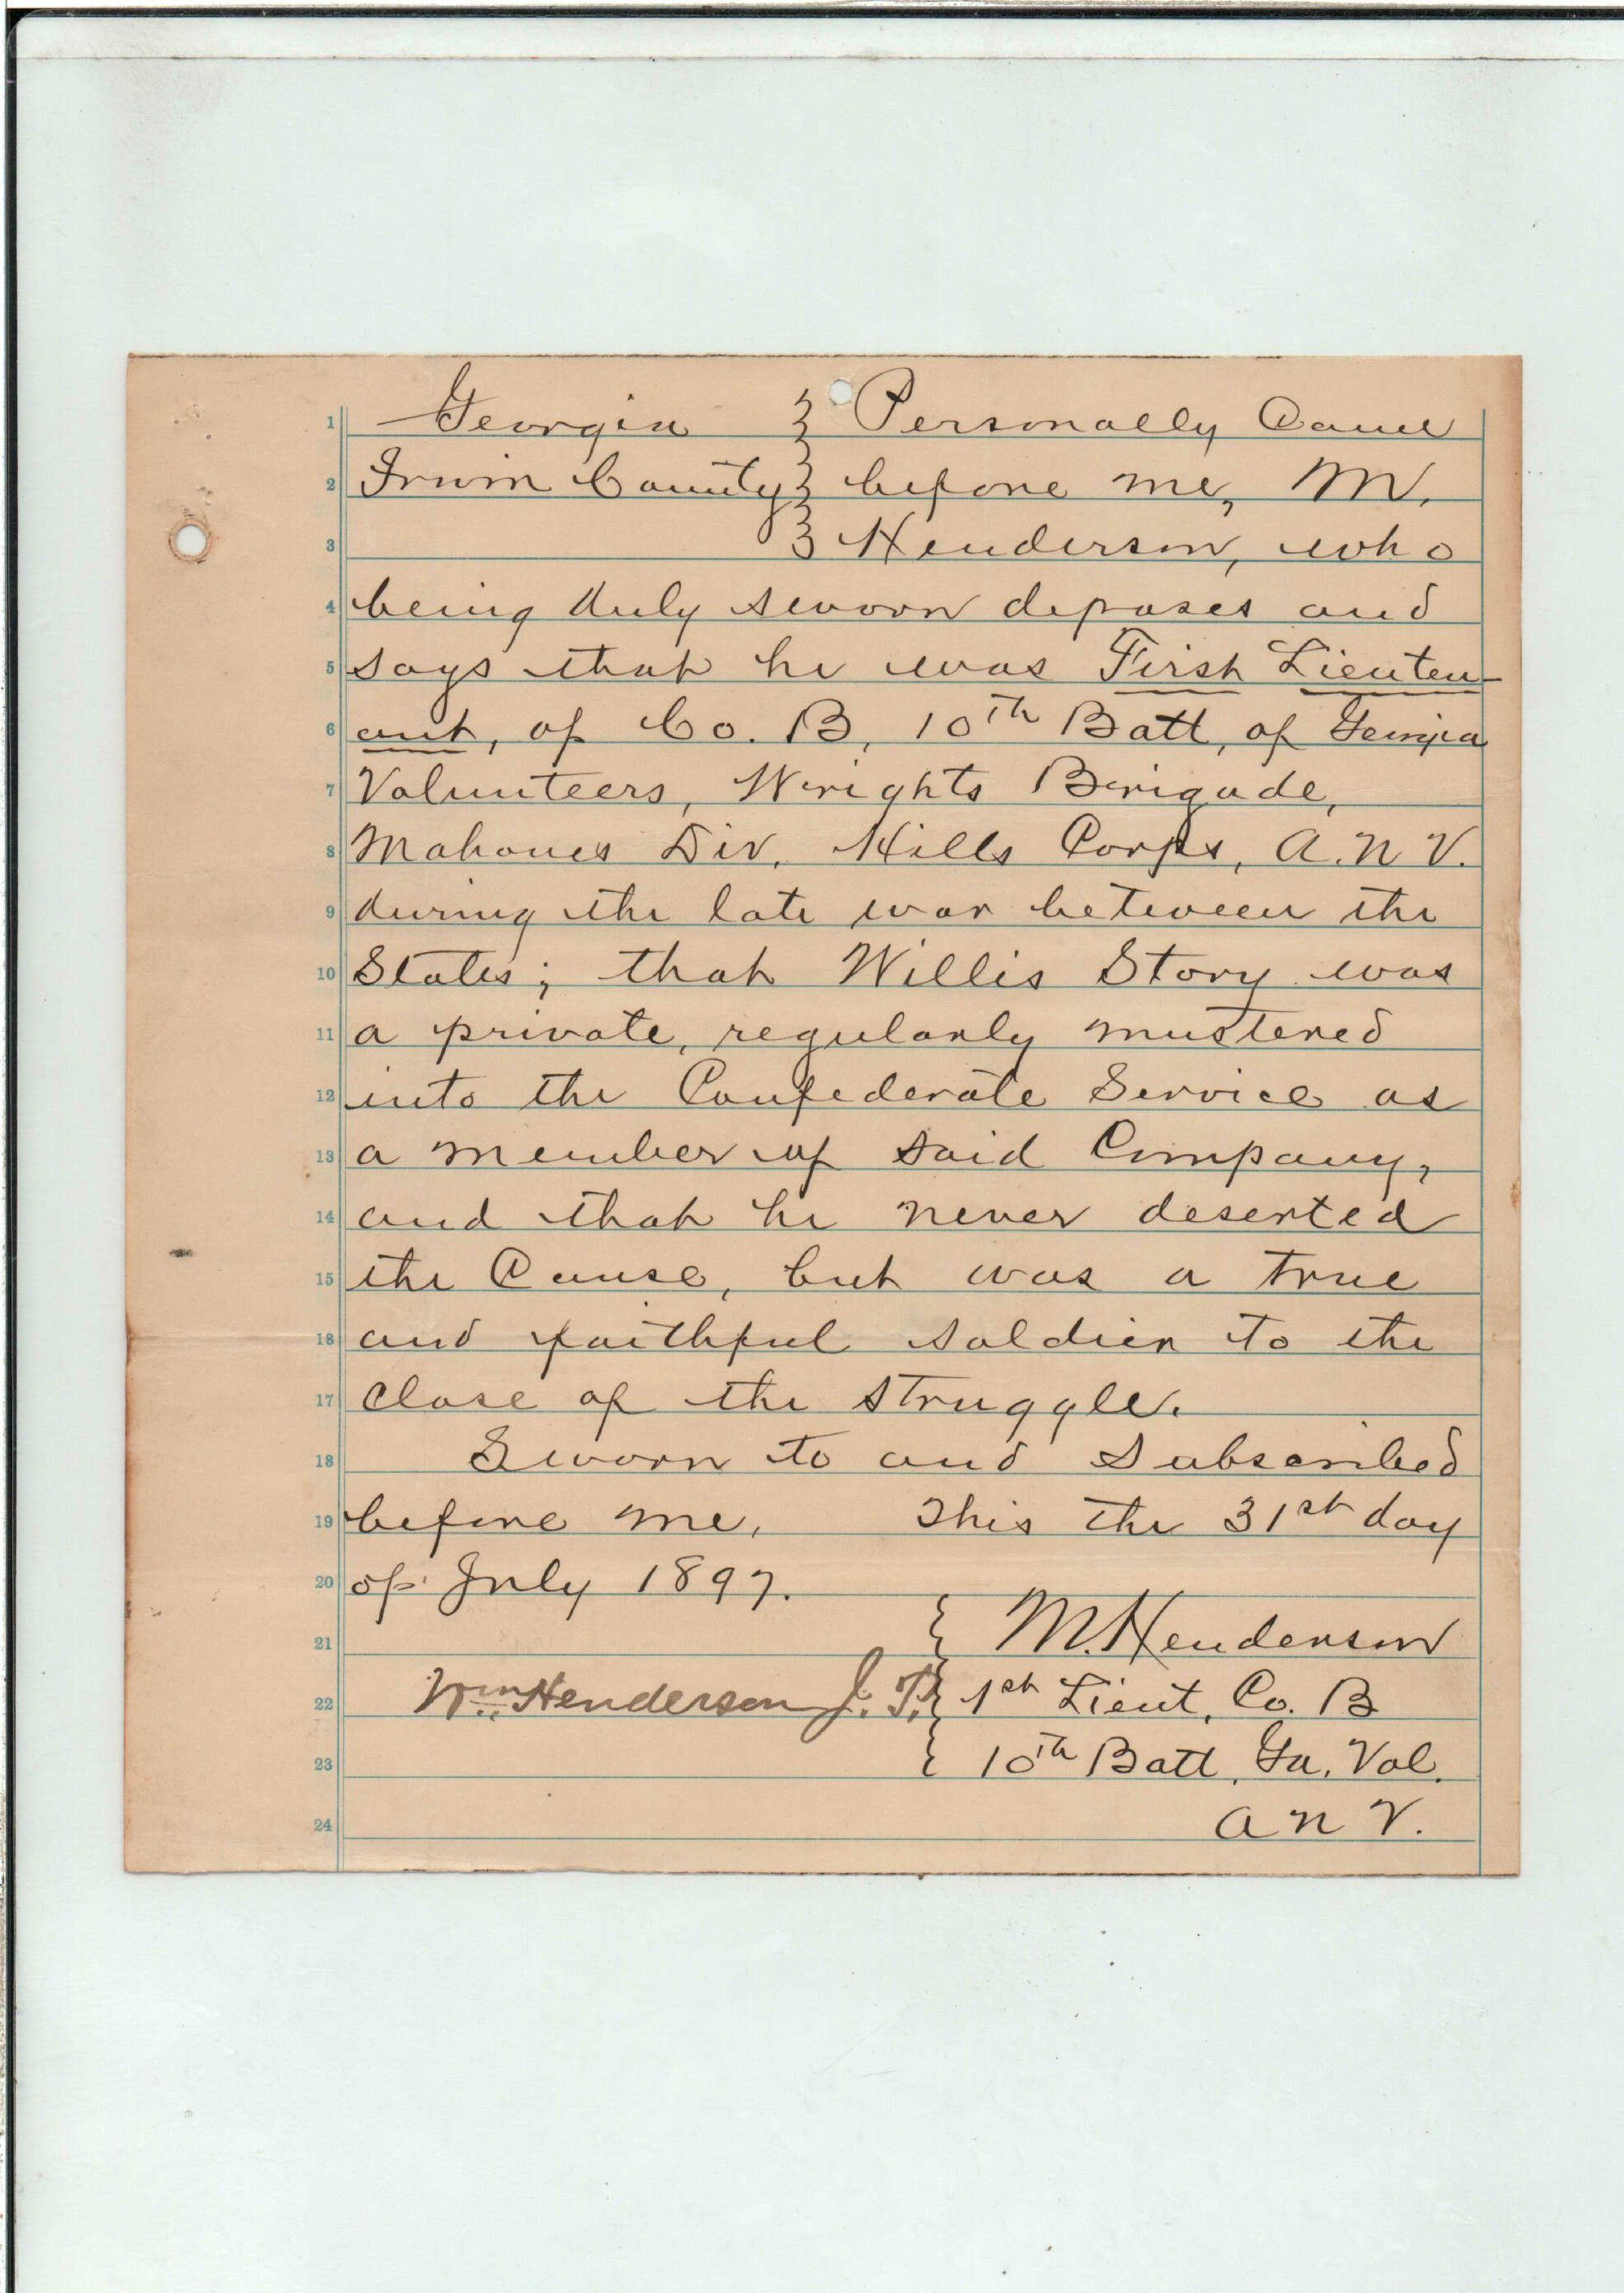 1 Georgia } Personally Came
2 Irwin County } before me, M.
3 } Henderson, who
4 being duly sworn deposes and
5 says that he was First Lieuten-
6 ant, of Co. B, 10th Batt, of Georgia
7 Volunteers, Wrights Brigade,
8 Mahones Div. Hills Corps, A.N.V.
9 during the late war between the
10 States; that Willis Story was
11 a private, regularly mustered
12 into the Confederate Service as
13 a member of said Company,
14 and that he never deserted
15 the Cause, but was a true
16 and faithful soldier to the
17 close of the struggle.
18 Sworn to and Subscribed
19 before me, This the 31st day
20 of July 1897.
21 } M. Henderson
22 Wm Henderson J. P. } 1st Lieut, Co. B
23 } 10th Batt, Ga. Vol.
24 A N V.